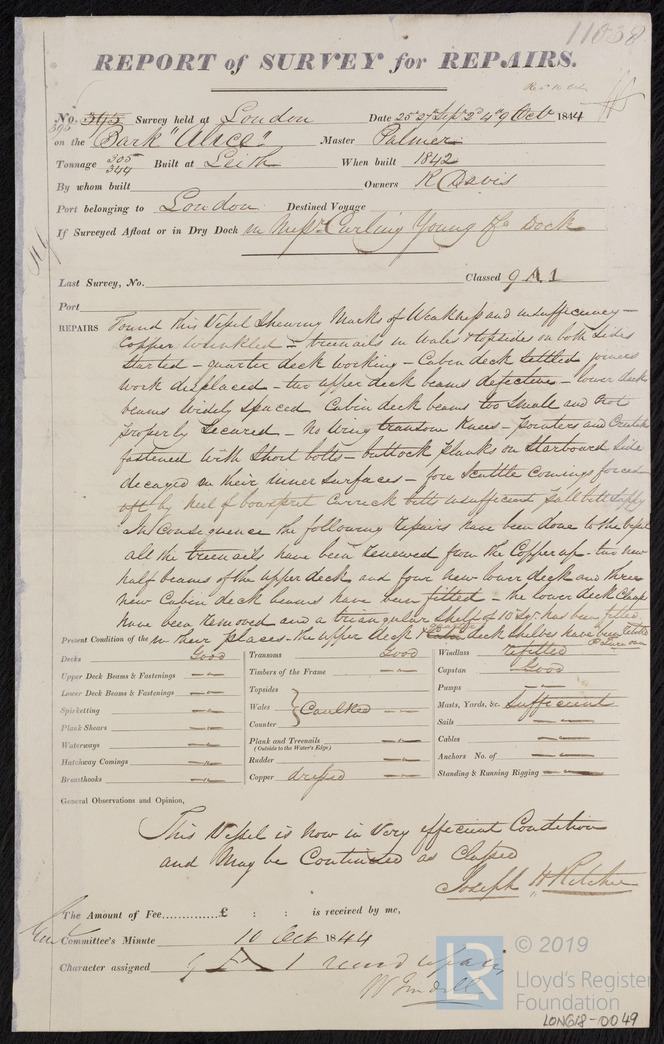 11038
REPORT of SURVEY for REPAIRS.
No. 395 Survey held at London Date 25th 27th Sept 2d 4th 9 Octr 1844
395
on the Bark "Alice" Master Palmer
Tonnage 305 344 Built at Leith When built 1842
By whom built Owners R Davis
Port belonging to London Destined Voyage
If Surveyed Afloat or in Dry Dock in Messrs Curling Young & Co Dock
Last Survey, No. Classed 9 A 1
Port
REPAIRS Found this Vessel Shewing Marks of Weakness and insufficiency —
Copper wrinkled — treenails in Wales & topsides on both Sides
started — quarter deck working — Cabin deck settled joiners
work displaced — two upper deck beams defective — lower deck
beams widely spaced Cabin deck beams too small and not
properly secured — No Wing transom Knees — pointers and Crutch
fastened with Short bolts — buttock planks on Starboard Side
decayed on their inner surfaces — fore Scuttle Comings forced
off by heel of bowsprit Carrick bitts insufficient pall bitt
In Consequence the following repairs have been done to the Vessel
all the treenails have been renewed from the Copper up — two new
half beams of the upper deck and four new lower deck and three
new Cabin deck beams have been fitted — the lower deck Clamps
have been removed and a triangular Shelf of 10 Sqr has been fitted
Present Condition of the in their places — the upper deck & quarter deck Shelves have been
Decks Good Transoms Good Windlass refitted
Upper Deck Beams & Fastenings — Timbers of the Frame — Capstan Good
Lower Deck Beams & Fastenings — Topsides Pumps —
Spirketting — Wales } Caulked — Masts, Yards, &c. Sufficient
Plank Shears — Counter Sails —
Waterways — Plank and Treenails — Cables —
(Outside to the Water's Edge)
Hatchway Comings — Rudder — Anchors No. of —
Breasthooks — Copper dressed — Standing & Running Rigging —
General Observations and Opinion,
This Vessel is now in Very efficient Condition
and May be Continued as Classed
Joseph H Ritchie
The Amount of Fee..............£ : : is received by me,
Committee's Minute 10 Oct 1844
Character assigned 9 A 1
© 2019
LR
Lloyd's Register
Foundation
LON618-0049